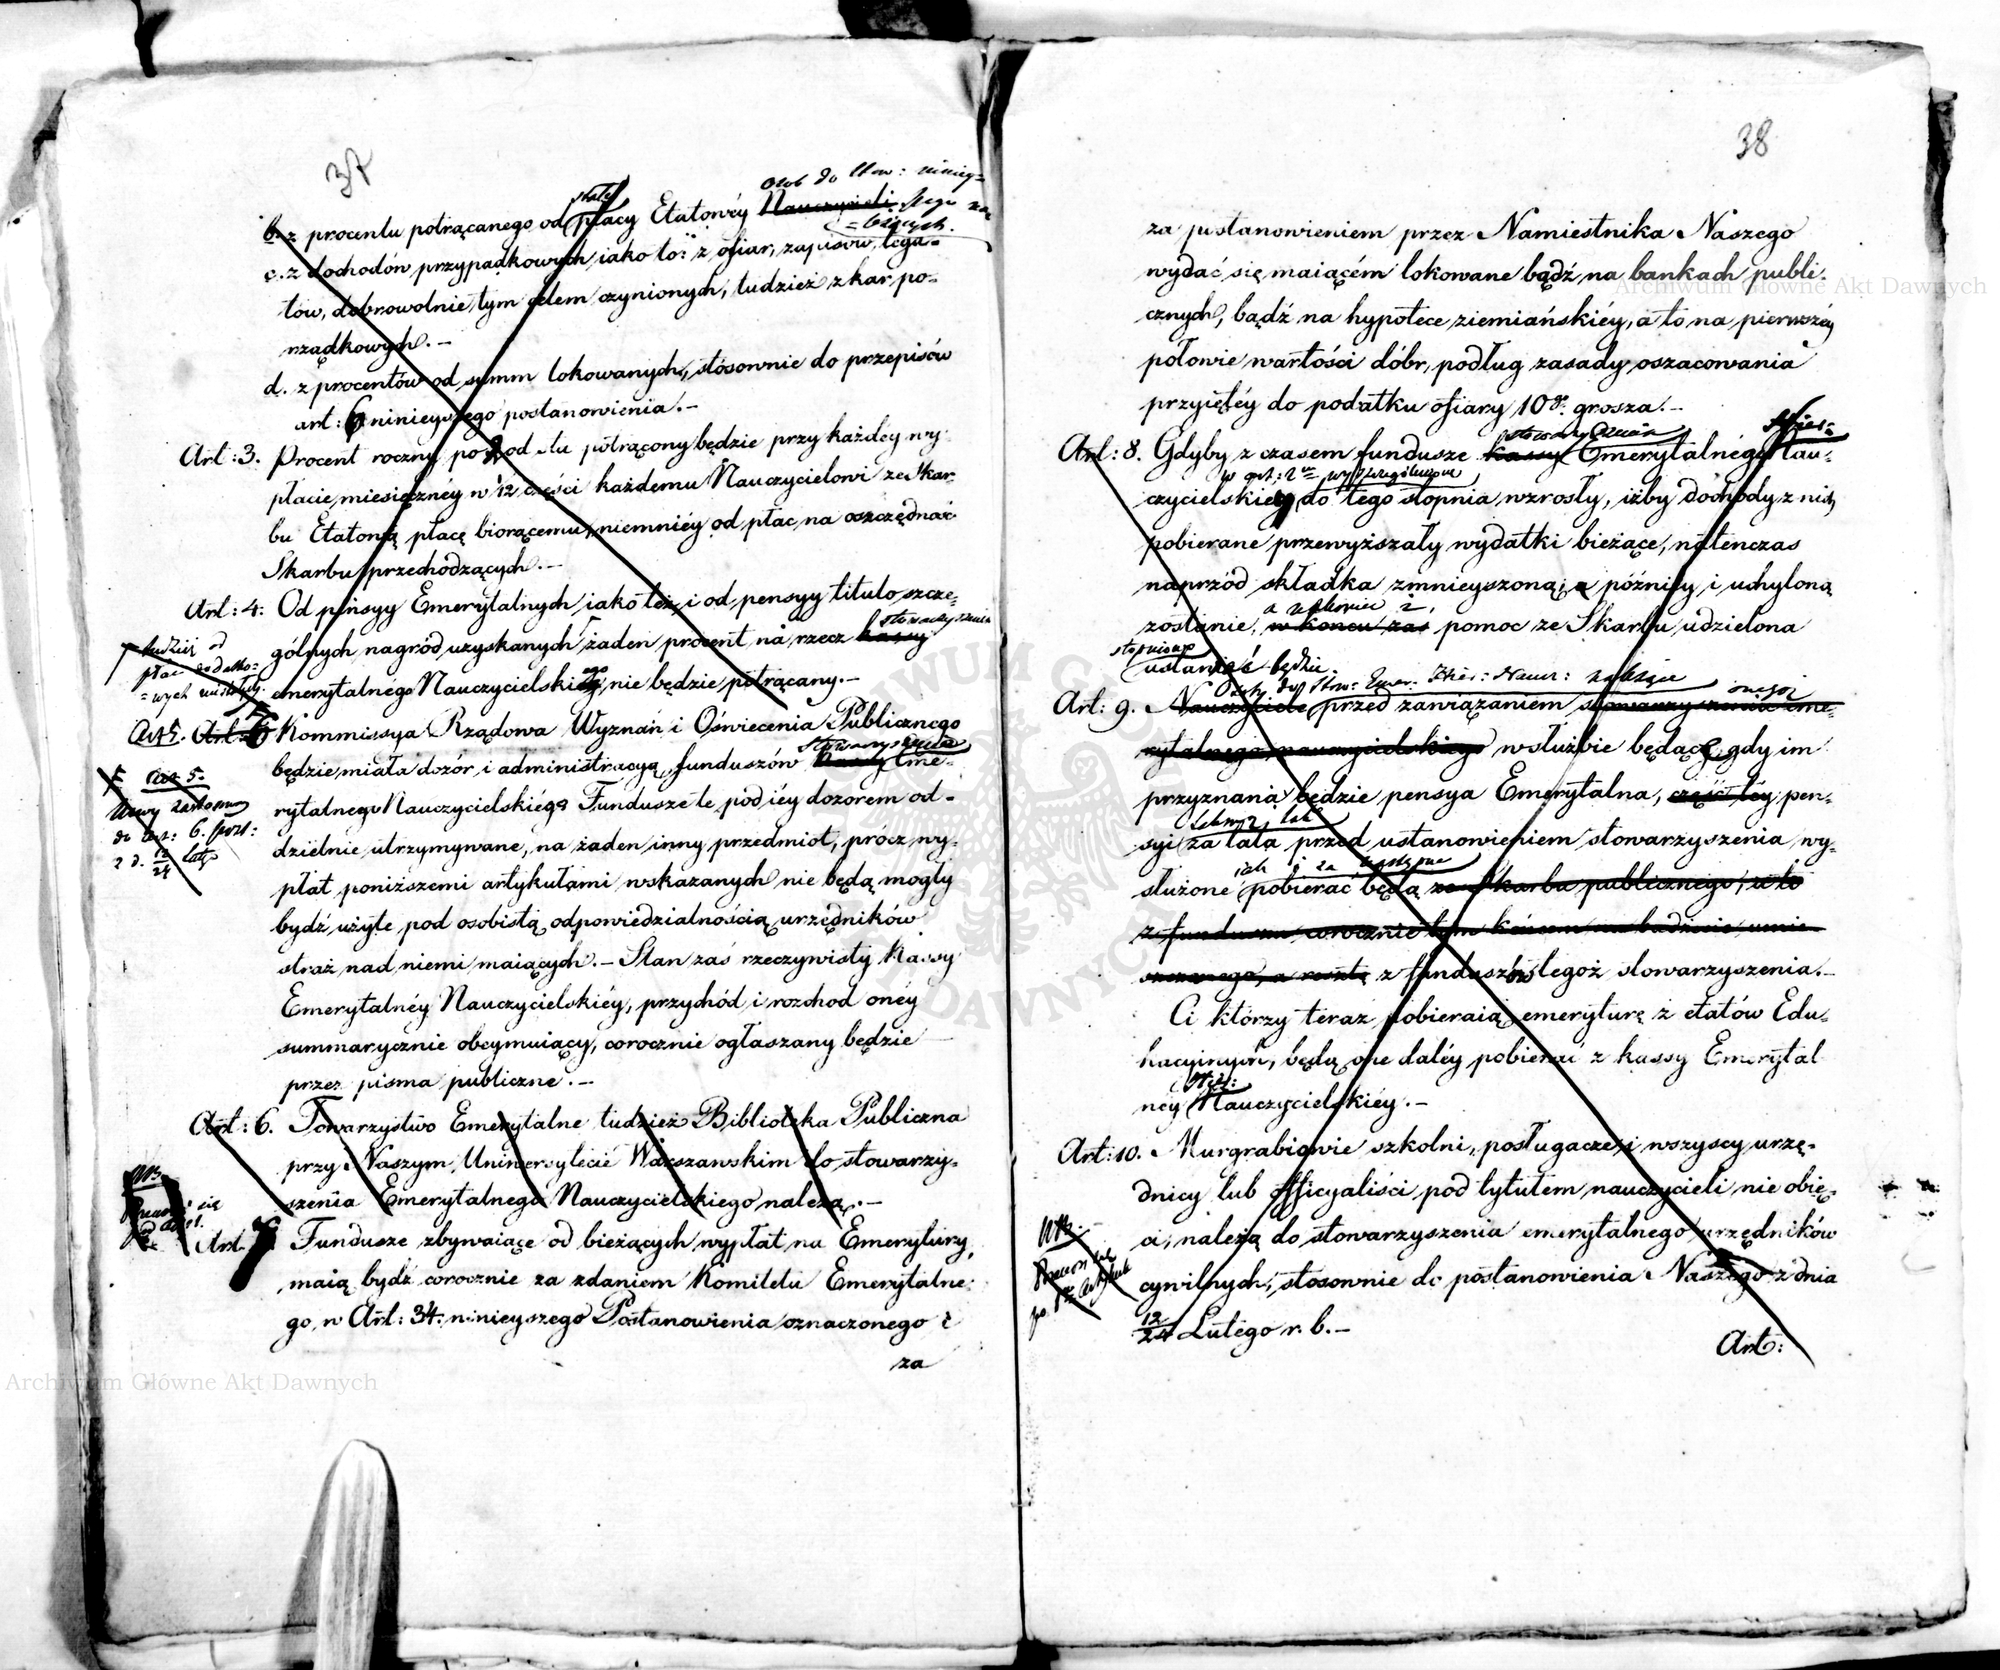 37
stałey
Osób do Stow: niniey-
b. z procentu potrącanego od płacy Etatowéy Nauczycieli szego na-
=leżących.
c. z dochodów przypadkowych iako to: z ofiar, zapisów, lega-
tów, dobrowolnie tym celem czynionych, tudzież z kar po-
rządkowych. —
d. z procentów od summ lokowanych, stósownie do przepisów
art: 6 ninieyszego postanowienia. —
Art: 3. Procent roczny po 2 od sta potrącony będzie przy każdey wy-
płacie miesięcznéy w 12 części każdemu Nauczycielowi ze Skar-
bu Etatową płacę biorącemu, niemniéy od płac na oszczędność
Skarbu przechodzących. —
Art: 4: Od pensyy Emerytalnych iako też i od pensyy titulo szcze-
stowarzyszenia
gólnych nagród uzyskanych żaden procent na rzecz kassy
tudzież od
płac dodatko=
=wych
emerytalnégo Nauczycielskiego nie będzie potrącany. —
Art 5. Art: 6 Kommissya Rządowa Wyznań i Oświecenia Publicznego
stowarzyszenia
będzie miała dozór i administracyą funduszów Kassy Eme-
rytalnego Nauczycielskiégo Fundusze te pod iéy dozorem od-
dzielnie utrzymywane, na żaden inny przedmiot, prócz wy-
płat poniższemi artykułami wskazanych nie będą mogły
bydź użyte pod osobistą odpowiedzialnością urzędników
straż nad niemi maiących. — Stan zaś rzeczywisty Kassy
Emerytalnéy Nauczycielskiéy, przychód i rozchod onéy
summarycznie obeymuiący, corocznie ogłaszany będzie
przez pisma publiczne. —
5.
Nowy zastosow:
do art: 6. post:
z d. 12/24 Lutego
Art: 6. Towarzystwo Emerytalne tudzież Biblioteka Publiczna
przy Naszym Uniwersytecie Warszawskim do stowarzy-
szenia Emerytalnego Nauczycielskiego należą. —
NB
Art. 7 Fundusze zbywaiące od bieżących wypłat na Emerytury,
maią bydź corocznie za zdaniem Komitetu Emerytalne-
go, w Art: 34: ninieyszego Postanowienia oznaczonego i
za
38
za postanowieniem przez Namiestnika Naszego
wydać się maiącém lokowane bądź na bankach publi-
cznych, bądź na hypotece ziemiańskiéy, a to na pierwszéy
połowie wartości dóbr, podług zasady oszacowania
przyiętéy do podatku ofiary 10go grosza. —
stowarzyszenia
Art: 8. Gdyby z czasem fundusze kassy Emerytalnégo Nau-
w art: 2m wyszczególnione
czycielskiéy do tego stopnia wzrosły, iżby dochody z nich
pobierane przewyższały wydatki bieżące, natenczas
naprzód składka zmnieyszoną a późniéy i uchyloną
a nakoniec i
zostanie, w koncu zaś pomoc ze Skarbu udzielona
stopniowo
ustawać będzie.
Osoby do Stow: Emer: Nauz: należące
onego
Art: 9. Nauczyciele przed zawiązaniem stowarzyszenia eme-
rytalnego nauczycielskiego w służbie będące gdy im
przyznaną będzie pensya Emerytalna, część téy pen-
syi za lata przed ustanowieniem stowarzyszenia wy-
służone pobierać będą ze Skarbu publicznego, a to
z funduszu corocznie tym końcem na budżecie umie-
szczonego, a resztę z funduszów tegoż stowarzyszenia. —
Ci którzy teraz pobieraią emeryturę z etatów Edu-
kacyinych, będą one daléy pobierać z kassy Emerytal-
néy Nauczycielskiéy. —
Art: 10. Murgrabiowie szkolni, posługacze i wszyscy urzę-
dnicy lub officyaliści pod tytułem nauczycieli nie obię-
ci, należą do stowarzyszenia emerytalnego urzędników
cywilnych, stosownie do postanowienia Naszego z dnia
12/24 Lutego r. b. —
NB.
Art:
Archiwum Główne Akt Dawnych
Archiwum Główne Akt Dawnych